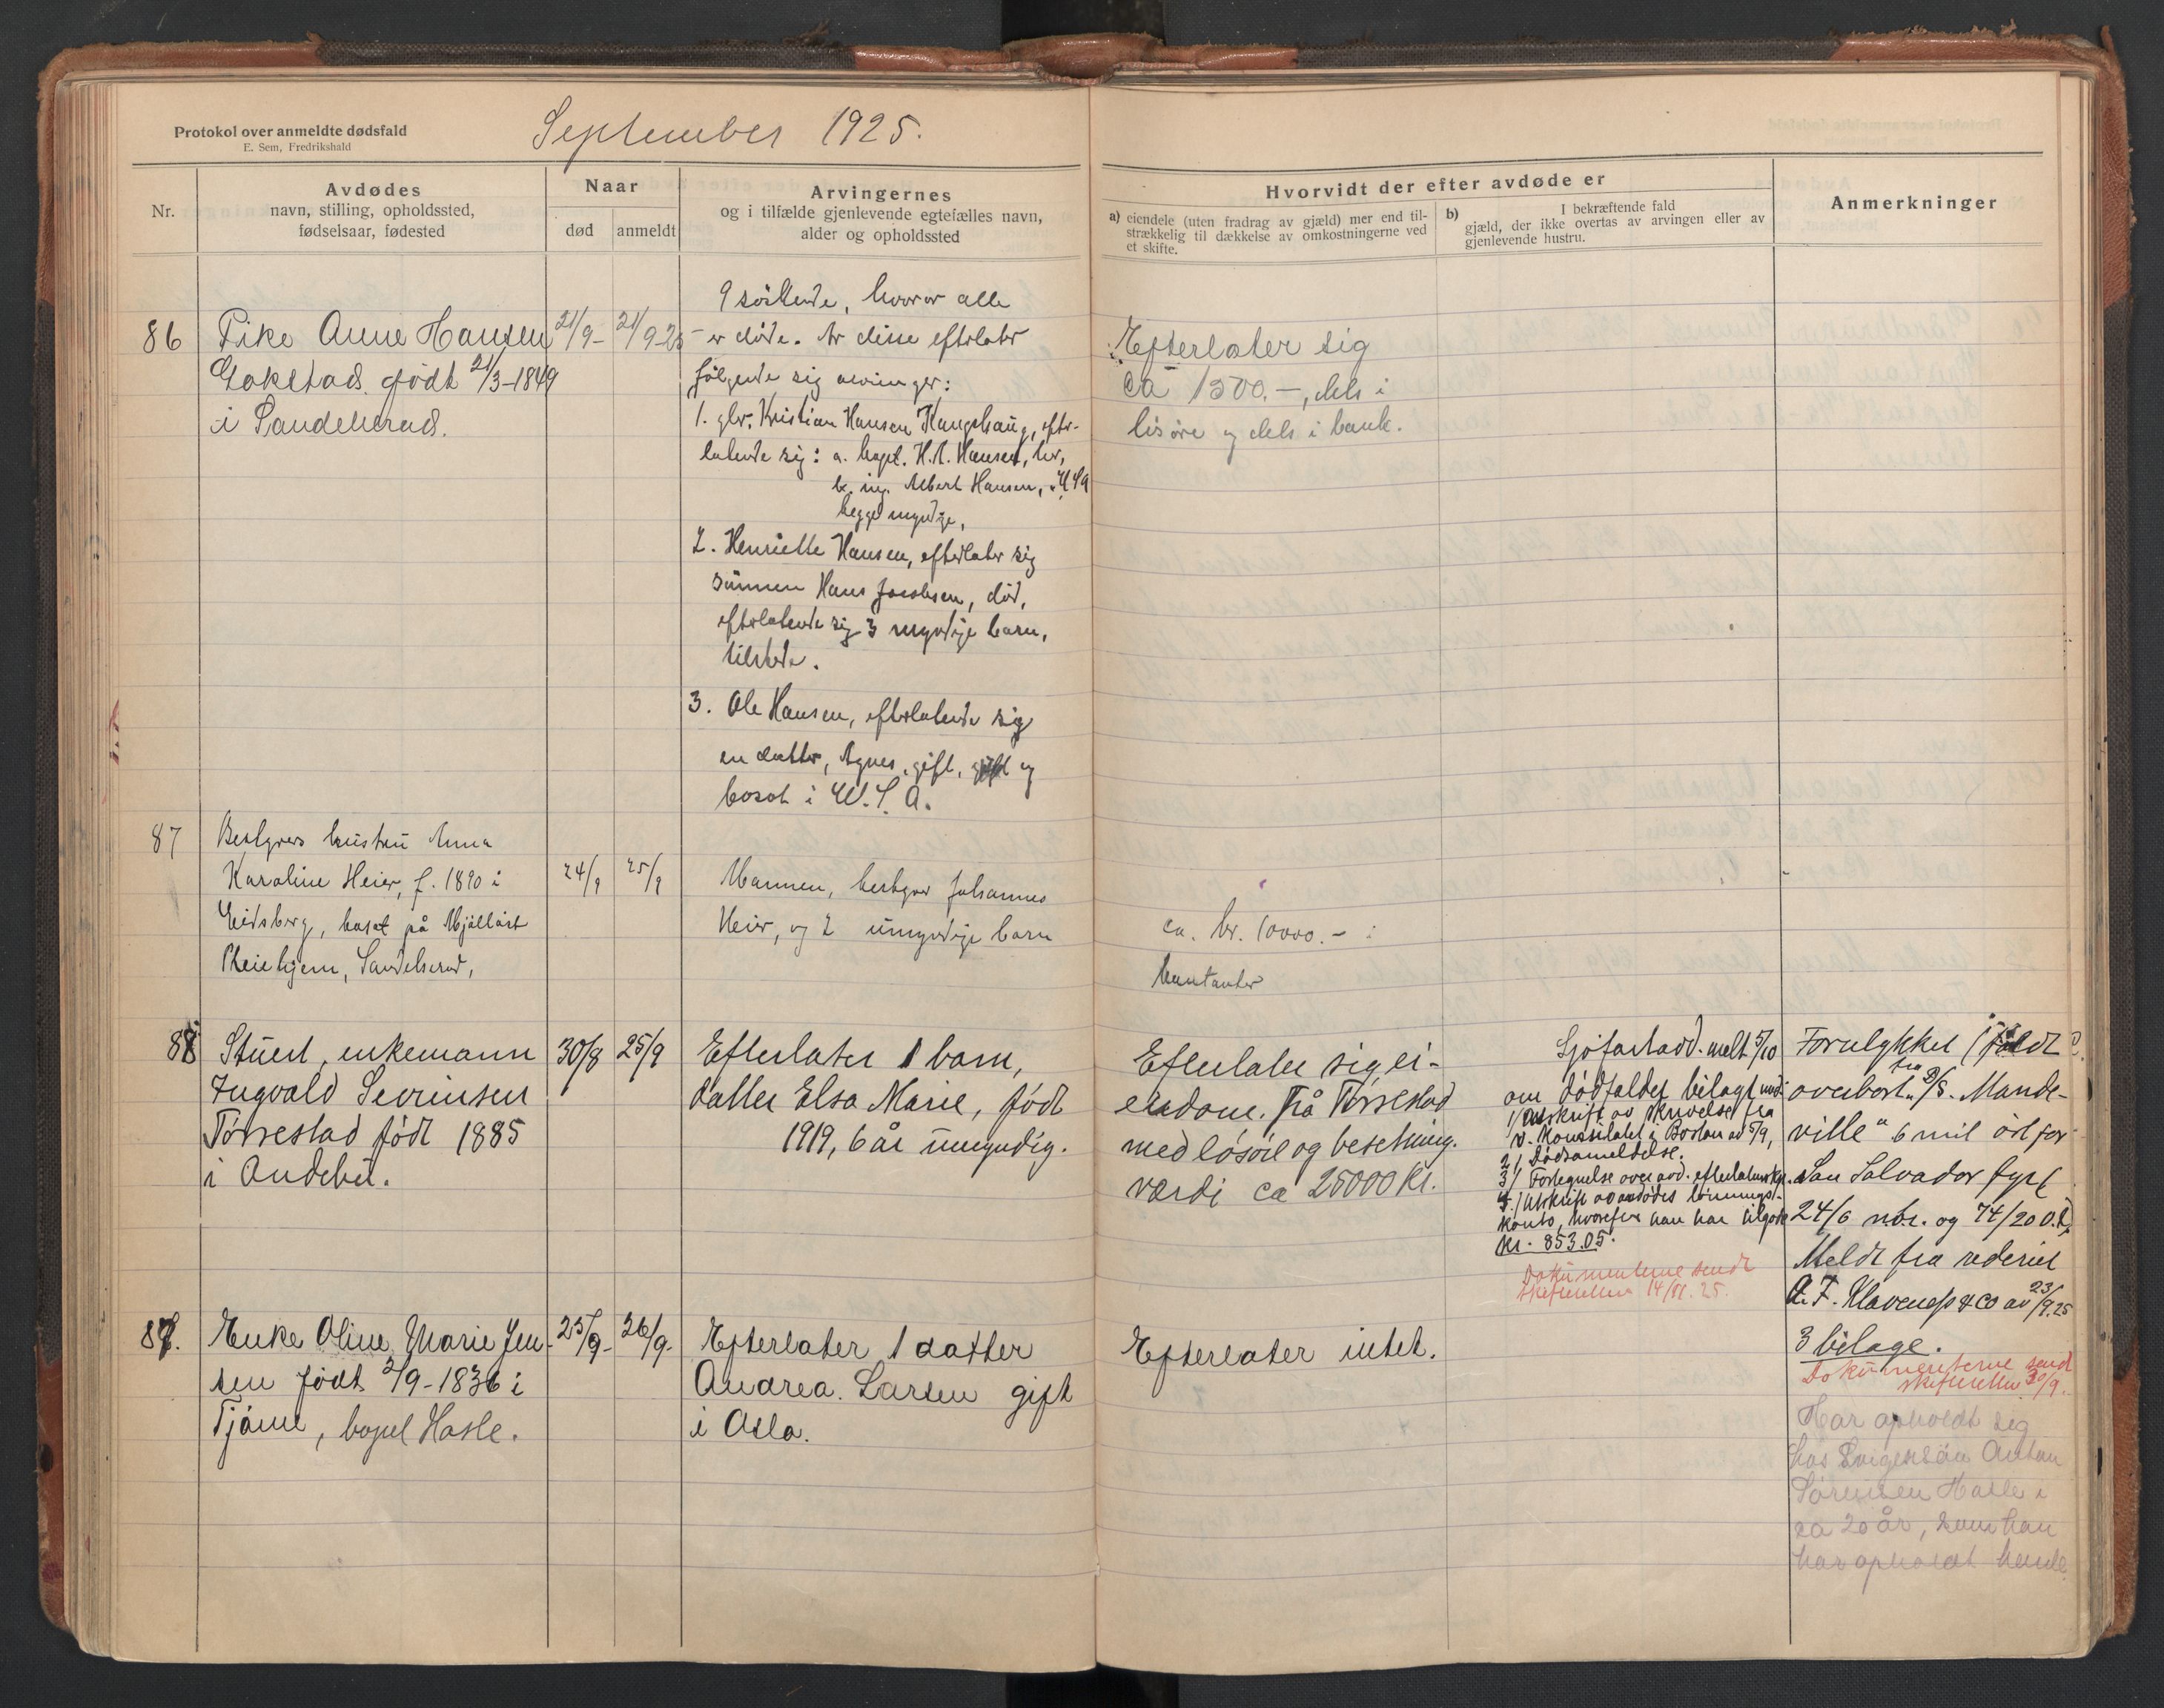 Protokol over anmeldte dødsfald
E. Sem, Fredrikshald
September 1925.
Nr.
Avdødes
navn, stilling, opholdssted,
fødselsaar, fødested
Naar
død
anmeldt
Arvingernes
og i tilfælde gjenlevende egtefælles navn,
alder og opholdssted
Hvorvidt der efter avdøde er
a) eiendele (uten fradrag av gjæld) mer end til-
strækkelig til dækkelse av omkostningerne ved
et skifte.
b) I bekræftende fald
gjæld, der ikke overtas av arvingen eller av
gjenlevende hustru.
Anmerkninger
86
Pike Anne Hansen
Gokstad født 21/3-1849
i Sandeherad.
21/9-
21/9-25
9 søskende, hvorav alle
er døde. Av disse efterlater
følgende sig arvinger:
1. gbr. Kristian Hansen Haugshaug, efter-
latende sig: a. kapt. H. A. Hansen, her,
b. ing. Albert Hansen, USA
begge myndige,
2. Henriette Hansen, efterlater sig
sønnen Hans Jacobsen, død,
efterlatende sig 3 myndige barn,
tilstede.
3. Ole Hansen, efterlatende sig
en datter, Agnes, gift, og
bosat i U.S.A.
Efterlater sig
ca 1500.-, dels i
løsøre og dels i bank.
87
Bestyrers hustru Anna
Karoline Heier, f. 1890 i
Eidsberg, bosat på Mjøllöst
Pleiehjem, Sandeherad,
24/9
25/9
Mannen, bestyrer Johannes
Heier, og 2 umyndige barn
ca. kr. 10000.- i
kontanter
88
Stuert, enkemann
Ingvald Sevrinsen
Tørrestad født 1885
i Andebu.
30/8
25/9
Efterlater 1 barn,
datter Elsa Marie, født
1919, 6 år umyndig.
Efterlater sig ei-
endom. Frå Tørrestad
med løsøre og besetning.
værdi ca 25000 Kr.
Sjøfartsdd. melt 5/10
om dødsfaldet bilagt med:
1/ Avskrift av skrivelse fra
v. konsulatet i Boston ad 5/9,
2/ Dødsanmeldelse.
3/ Fortegnelse over avd. efterlatenskp.
4./ Utskrift av avdødes lønnings-
konto, hvorefter han har tilgode
Kr. 853.05.
Dokumenterne sendt
skifteretten 14/11. 25.
Forulykket (faldt
overbort fra "D/S. Mande-
ville" 6 mil øst for
San Salvador fyr (
24/6 n.br. og 74/20 v.l.)
Meldt fra rederiet
A. F. Klaveness & Co av 23/9. 25
3 bilage.
Dokumenterne sendt
skifteretten 30/9.
87.
Enke Oline Marie Jen-
sen født 2/9-1836 i
Tjøme, bopel Hasle.
25/9-
26/9-
Efterlater 1 datter
Andrea. Larsen gift
i Oslo.
Efterlater intet.
Har opholdt sig
hos Svigersøn Anton
Sørensen Hasle i
ca 20 år, som han
har opholdt hende.